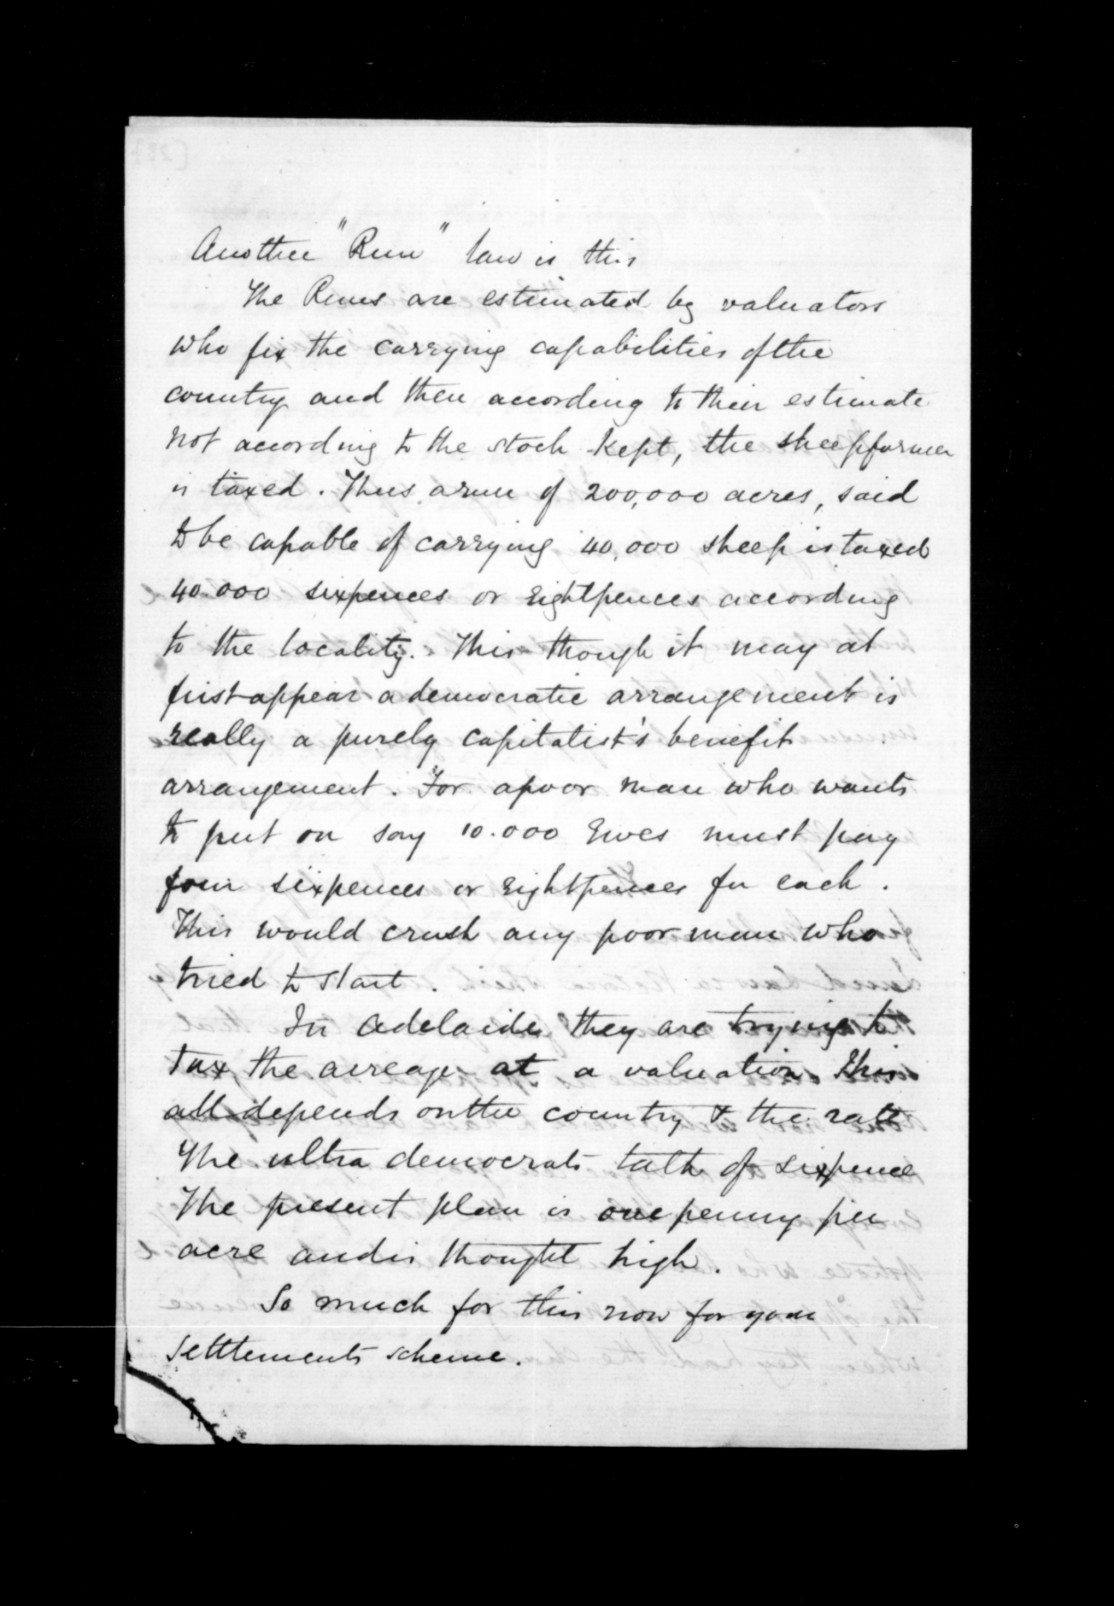 Another "Run" law is this
The Runs are estimated by valuators
who fix the carrying capabilities of the
country and then according to their estimate
not according to the stock kept, the sheepfarmer
is taxed. Thus a run of 200,000 acres, said
to be capable of carrying 40,000 sheep is taxed
40.000 sixpences or Eightpences according
to the locality. This though it may at
first appear a democratic arrangement is
really a purely capitalist's benefit
arrangement. For a poor man who wants
to put on say 10.000 Ewes must pay
four sixpences or Eightpences for each.
This would crush any poor man who
tried to start.
In Adelaide they are trying to
tax the acreage at a valuation this
all depends on the country & the rate
The ultra democrats talk of sixpence
The present plan is one penny per
acre and is thought high.
So much for this now for your
Settlements scheme.